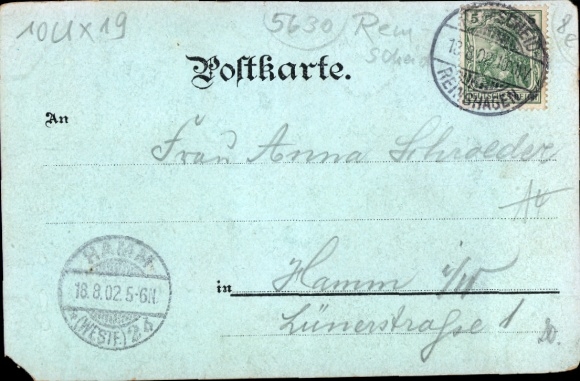 10UX19
5630 Rem
scheid
8e
Postkarte.
5
REMSCHEID
REINSHAGEN
An
Frau Anna Schroeder
HAMM
16.8.02.5-6N.
* (WESTF.) 2 *
in Hamm i/W
Lünerstraße 1
20.